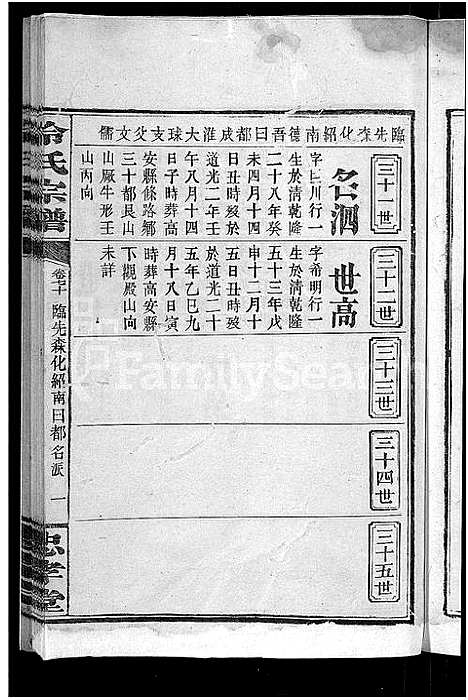 三十一世
三十二世
三十三世
三十四世
三十五世
臨先森化紹南德吾曰都成淮大球支父文儒
名泗
字曰川行一
生於清乾隆
二十八年癸
未四月十四
日丑時歿於
道光二年壬
午八月十四
日子時葬高
安縣條路鄉
三十都艮山
山厰牛形王
山丙向
世高
字希明行一
生於清乾隆
五十三年戊
申十二月十
五日丑時歿
於道光二十
五年乙巳九
月十八日寅
時葬高安縣
下觀殿山向
未詳
冷氏宗譜
臨先森化紹南曰都名派
一
忠孝堂
FamilySearch